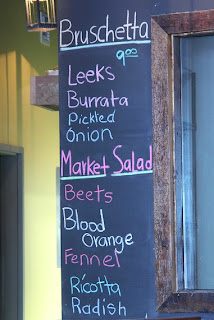 Bruschetta
9.00
Leeks
Burrata
Pickled
Onion
Market Salad
Beets
Blood
Orange
Fennel
Ricotta
Radish